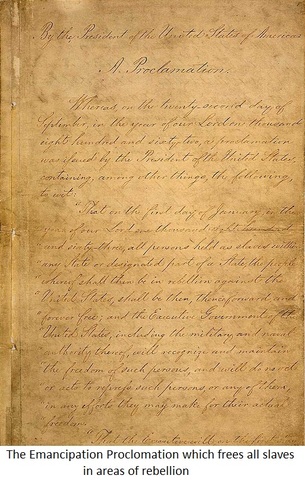 By the President of the United States of America:
A Proclamation.
Whereas, on the twenty-second day of
September, in the year of our Lord one thousand
eight hundred and sixty-two, a proclamation
was issued by the President of the United States,
containing, among other things, the following,
to wit:
"That on the first day of January, in the
year of our Lord one thousand eight hundred
and sixty-three, all persons held as slaves within
any State or designated part of a State, the people
whereof shall then be in rebellion against the
United States, shall be then, thenceforward, and
forever free; and the Executive Government of the
United States, including the military and naval
authority thereof, will recognize and maintain
the freedom of such persons, and will do no act
or acts to repress such persons, or any of them,
in any efforts they may make for their actual
freedom.
"That the Executive will, on the first day
The Emancipation Proclomation which frees all slaves
in areas of rebellion